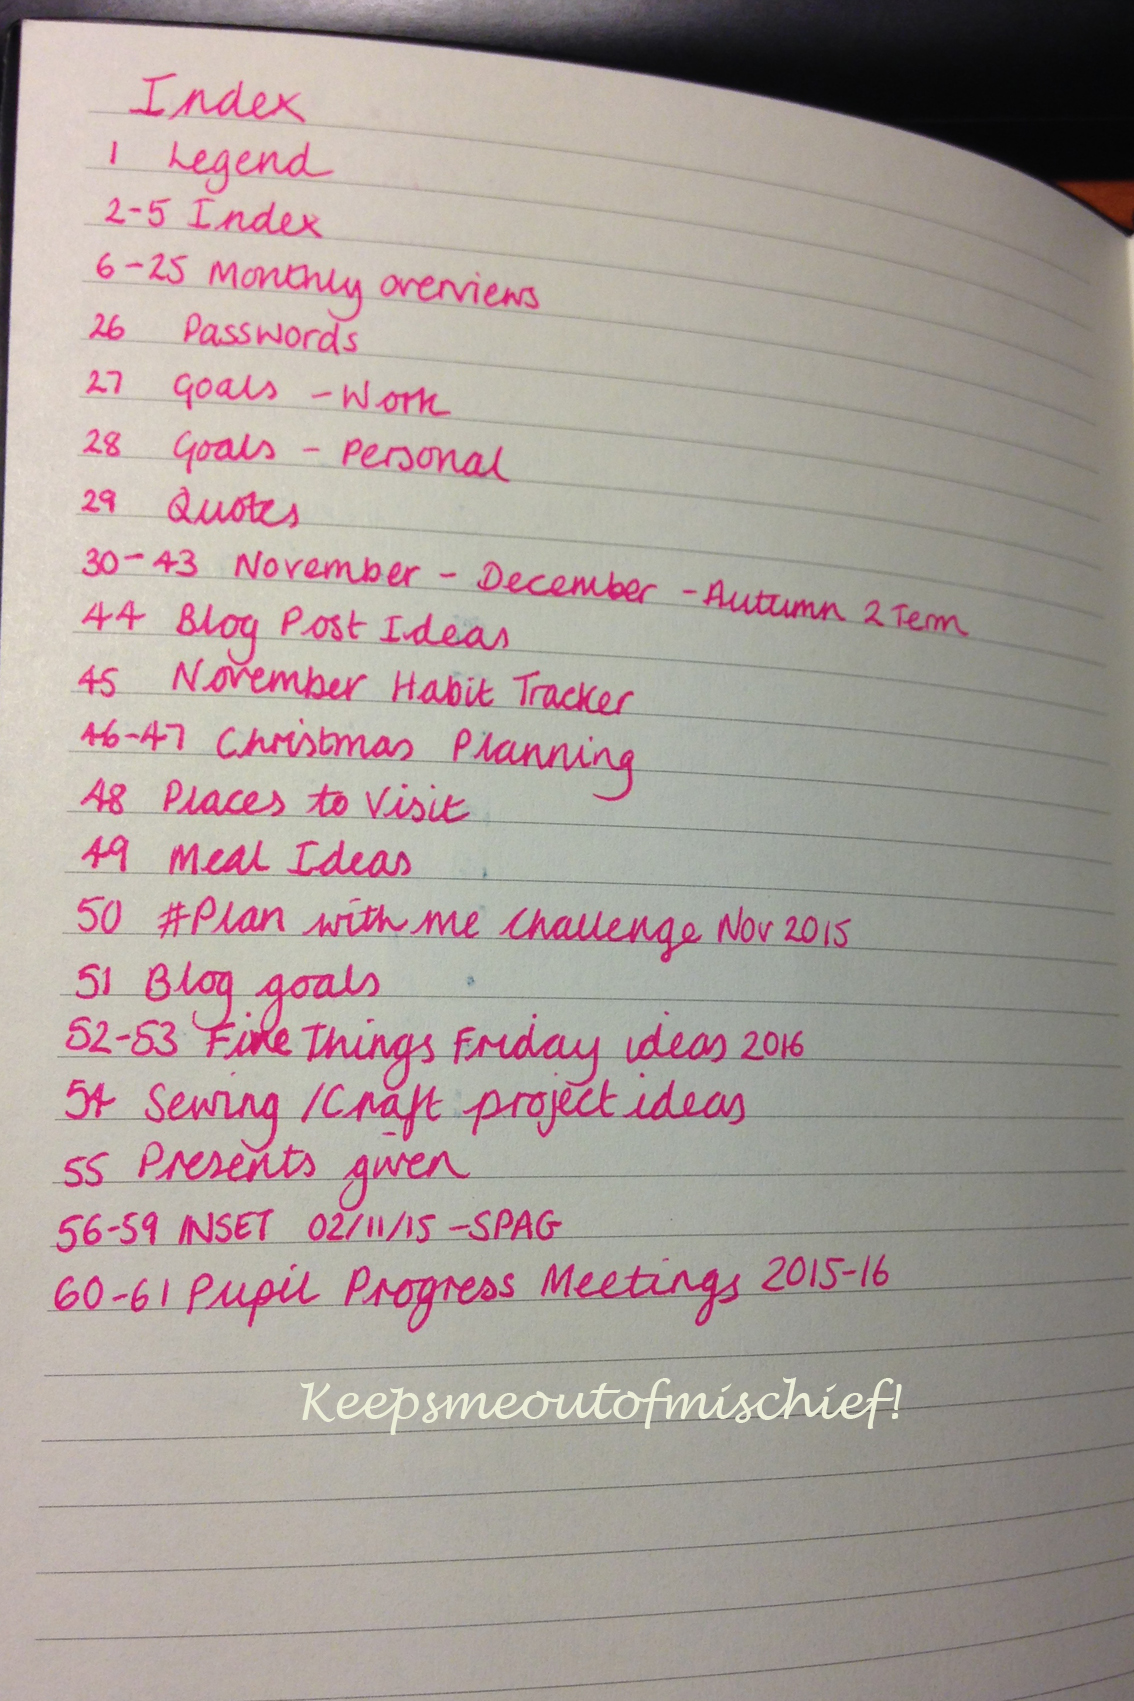 Index
1 Legend
2-5 Index
6-25 Monthly overviews
26 Passwords
27 Goals - Work
28 Goals - Personal
29 Quotes
30-43 November - December - Autumn 2 Term
44 Blog Post Ideas
45 November Habit Tracker
46-47 Christmas Planning
48 Places to Visit
49 Meal Ideas
50 #Plan with me challenge Nov 2015
51 Blog goals
52-53 Five Things Friday ideas 2016
54 Sewing /Craft project ideas
55 Presents given
56-59 INSET 02/11/15 -SPAG
60-61 Pupil Progress Meetings 2015-16
Keepsmeoutofmischief!